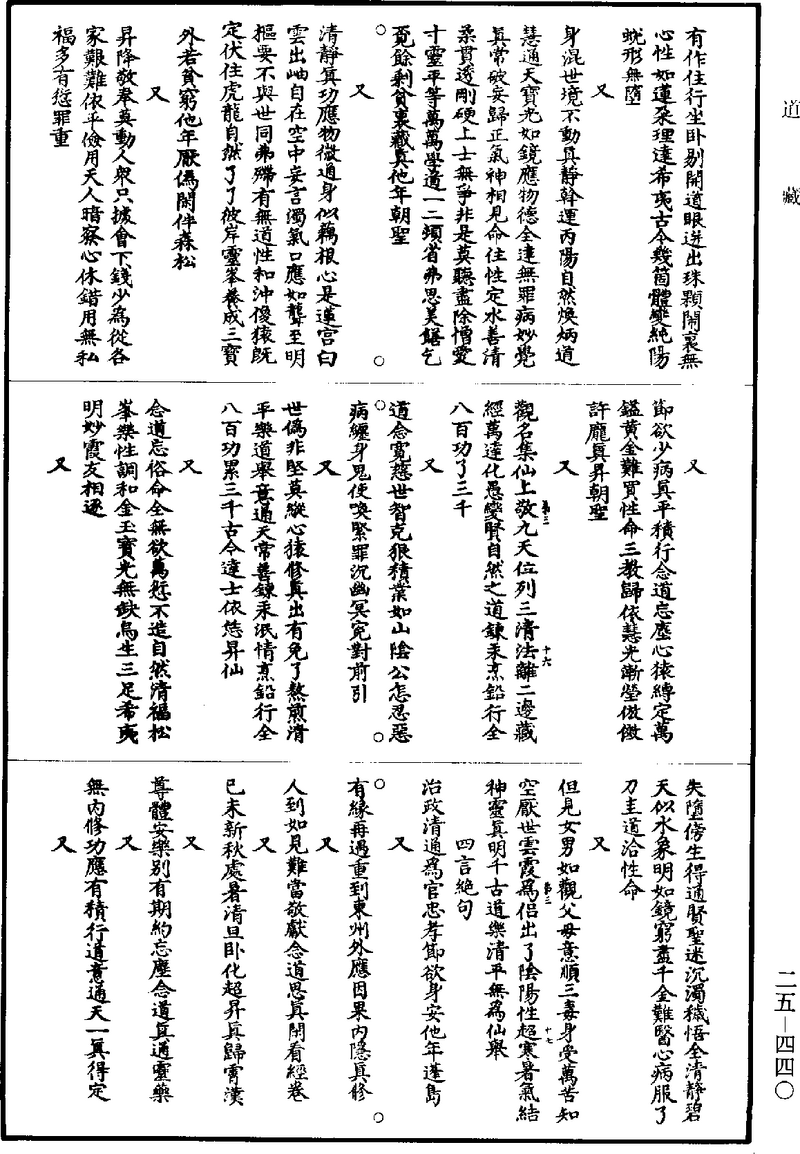 道藏
有作住行坐卧剔開道眼迸出珠顆鬧裏無
心性如蓮朶理達希夷古今幾箇體變純陽
蛻形無墮
又
身混世境不動眞靜斡運丙陽自然煥炳道
慧通天寶光如鏡應物德全達無罪病妙覺
眞常破妄歸正氣神相見命住性定水善清
柔貫透剛硬上士無爭非是莫聽盡除憎愛
十靈平等萬萬學道一二頻省弗思美饍乞
覓餘剩貧裏藏眞他年朝聖
又
清靜眞功應物微通身似藕根心是蓮宮白
雲出岫自在空中妄言濁氣口應如聾至明
樞要不與世同弗殢有無道性和沖傻猿旣
定伏住虎龍自然了了彼岸靈峯養成三寶
外若貧窮他年厭僞閑伴森松
又
昇降敬奉莫動人衆只據會下錢少為從各
家艱難依乎儉用天人暗察心休錯用無私
福多有愆罪重
又
節欲少病眞平積行念道忘塵心猿縛定萬
鎰黃金難買性命三教歸依慧光漸瑩倣傚
許龐眞昇朝聖
又
觀名集仙上敬九天位列三清法離二邊藏
經萬達化愚變賢自然之道鍊汞烹鉛行全
八百功了三千
又
道念寬慈世智克狠積業如山陰公怎忍惡
病纏身鬼使喚緊罪沉幽冥寃對前引
又
世僞非堅莫縱心猿修眞出有免了熬煎清
平樂道舉意通天常善鍊汞泯情烹鉛行全
八百功累三千古今達士依愆昇仙
又
念道忘俗命全無欲萬愆不造自然清福松
峯樂性調和金玉寶光無缺烏生三足希夷
明妙霞友相逐
又
失墮傍生得通賢聖迷沉濁穢悟全清靜碧
天似水象明如鏡窮盡千金難醫心病服了
刀圭道洽性命
又
但見女男如觀父母意順三毒身受萬苦知
空厭世雲霞為侶出了陰陽性超寒暑氣結
神靈眞明千古道樂清平無為仙舉
四言絶句
治政清通為官忠孝節欲身安他年蓬島
又
有緣再遇重到東州外應因果內隱眞修
又
人到如見難當敬獻念道思眞開看經卷
又
已未新秋處暑清旦卧化超昇眞歸霄漢
又
尊體安樂別有期約忘塵念道眞通靈藥
又
無內修功應有積行道意通天一眞得定
又
二五—四四〇